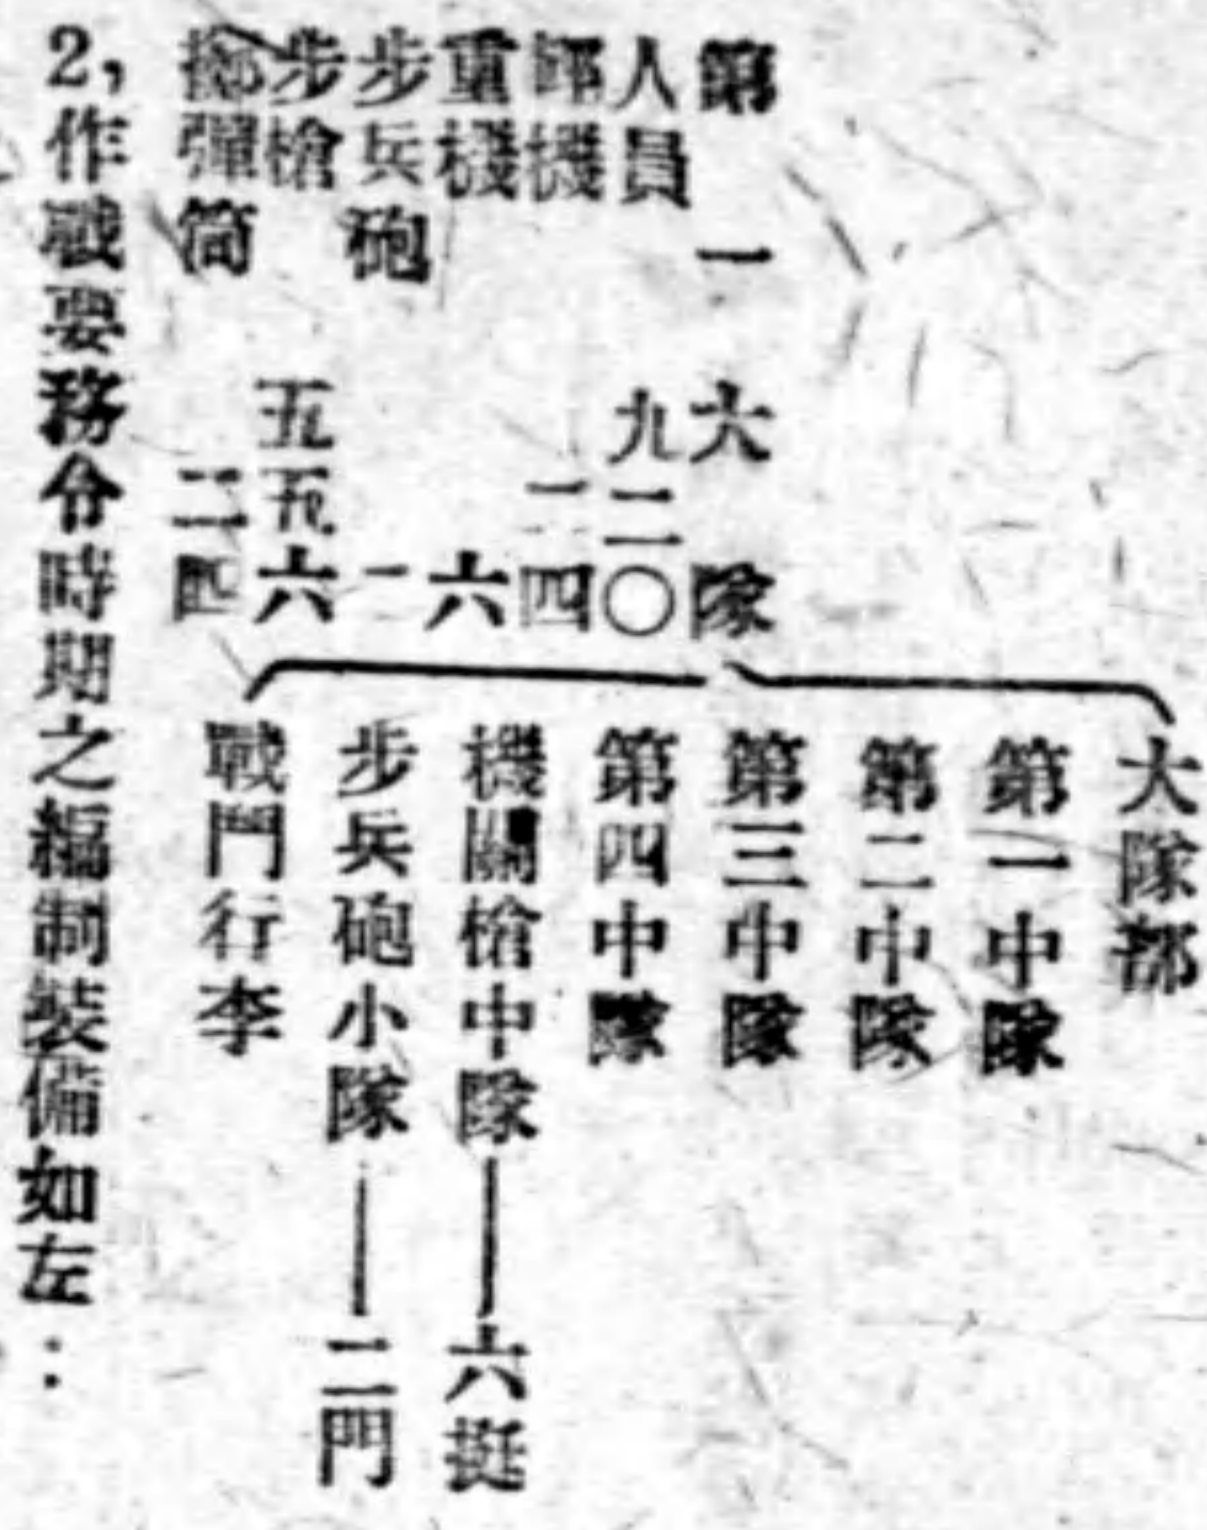 第一大隊
人員 九二〇
輕機 二四
重機 六
步兵砲 二
步槍 五五六
擲彈筒 二四
大隊部
第一中隊
第二中隊
第三中隊
第四中隊
機關槍中隊——六挺
步兵砲小隊——二門
戰鬥行李
2,作戰要務令時期之編制裝備如左: